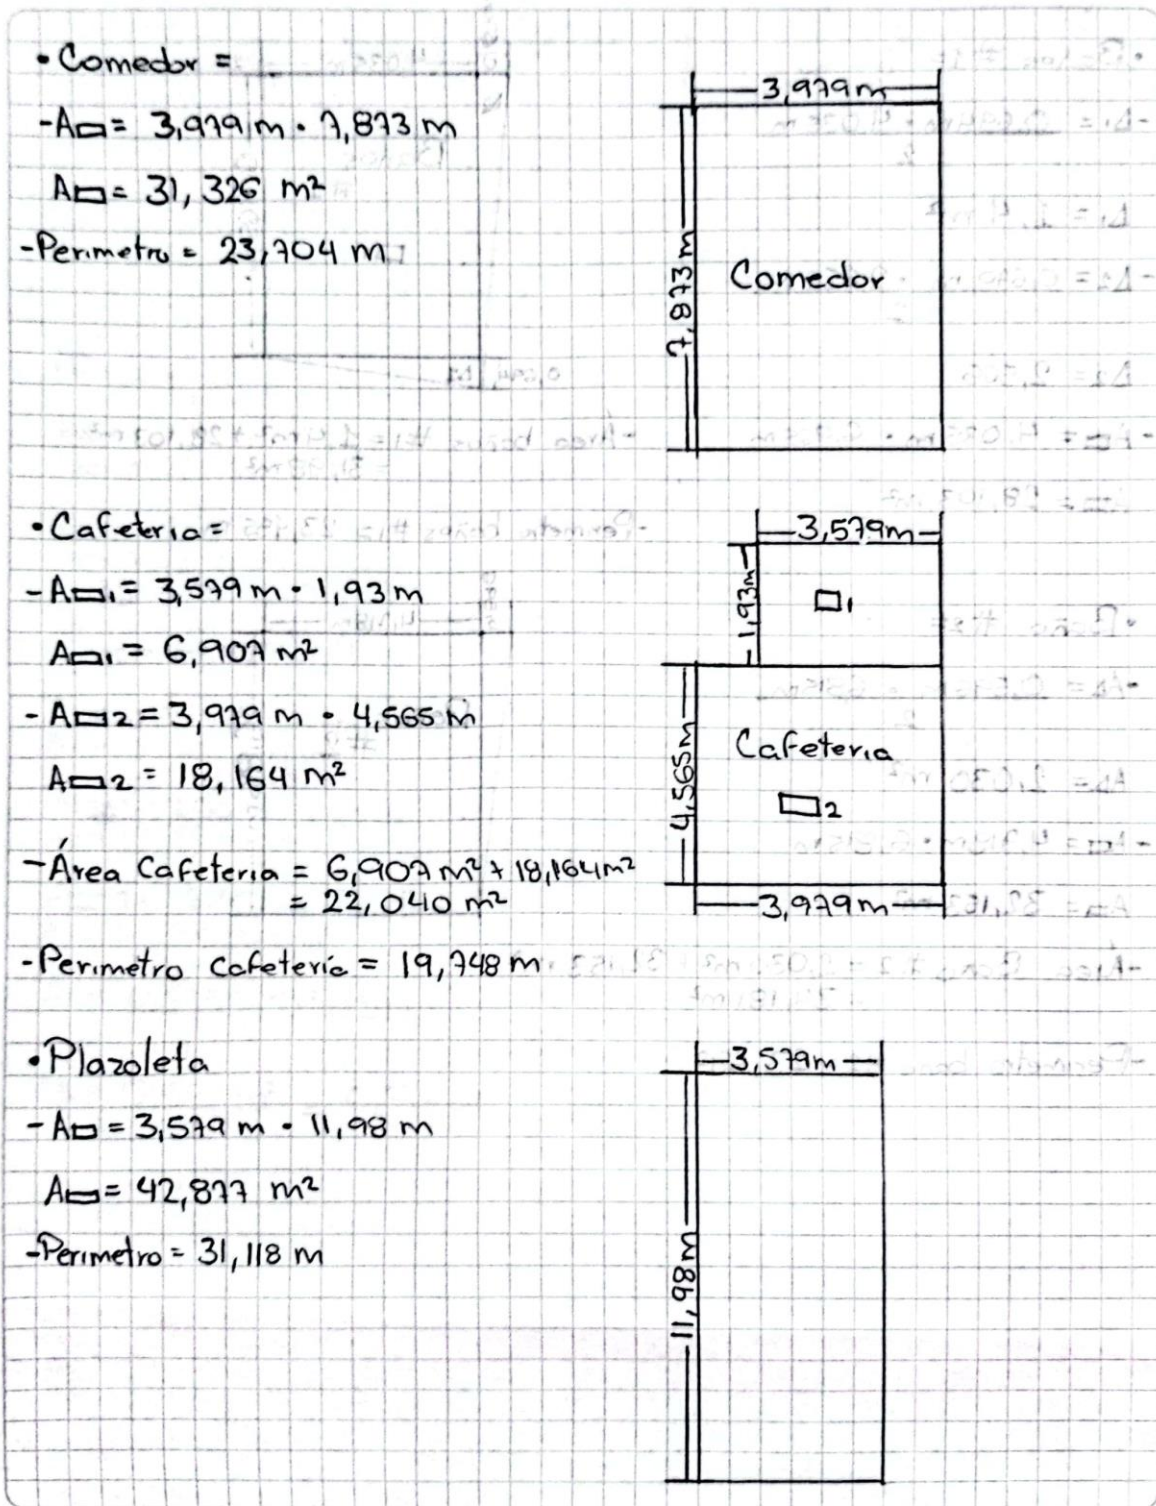 • Comedor =
- A▭ = 3,979 m · 7,873 m
A▭ = 31,326 m²
- Perimetro = 23,704 m
3,979m
7,873m
Comedor
• Cafeteria =
- A▭1 = 3,579 m · 1,93 m
A▭1 = 6,907 m²
- A▭2 = 3,979 m · 4,565 m
A▭2 = 18,164 m²
- Área Cafeteria = 6,907 m² + 18,164 m²
= 22,040 m²
- Perimetro cafetería = 19,748 m
3,579m
1,93m
▭1
4,565m
Cafeteria
▭2
3,979m
• Plazoleta
- A▭ = 3,579 m · 11,98 m
A▭ = 42,877 m²
- Perimetro = 31,118 m
3,579m
11,98m